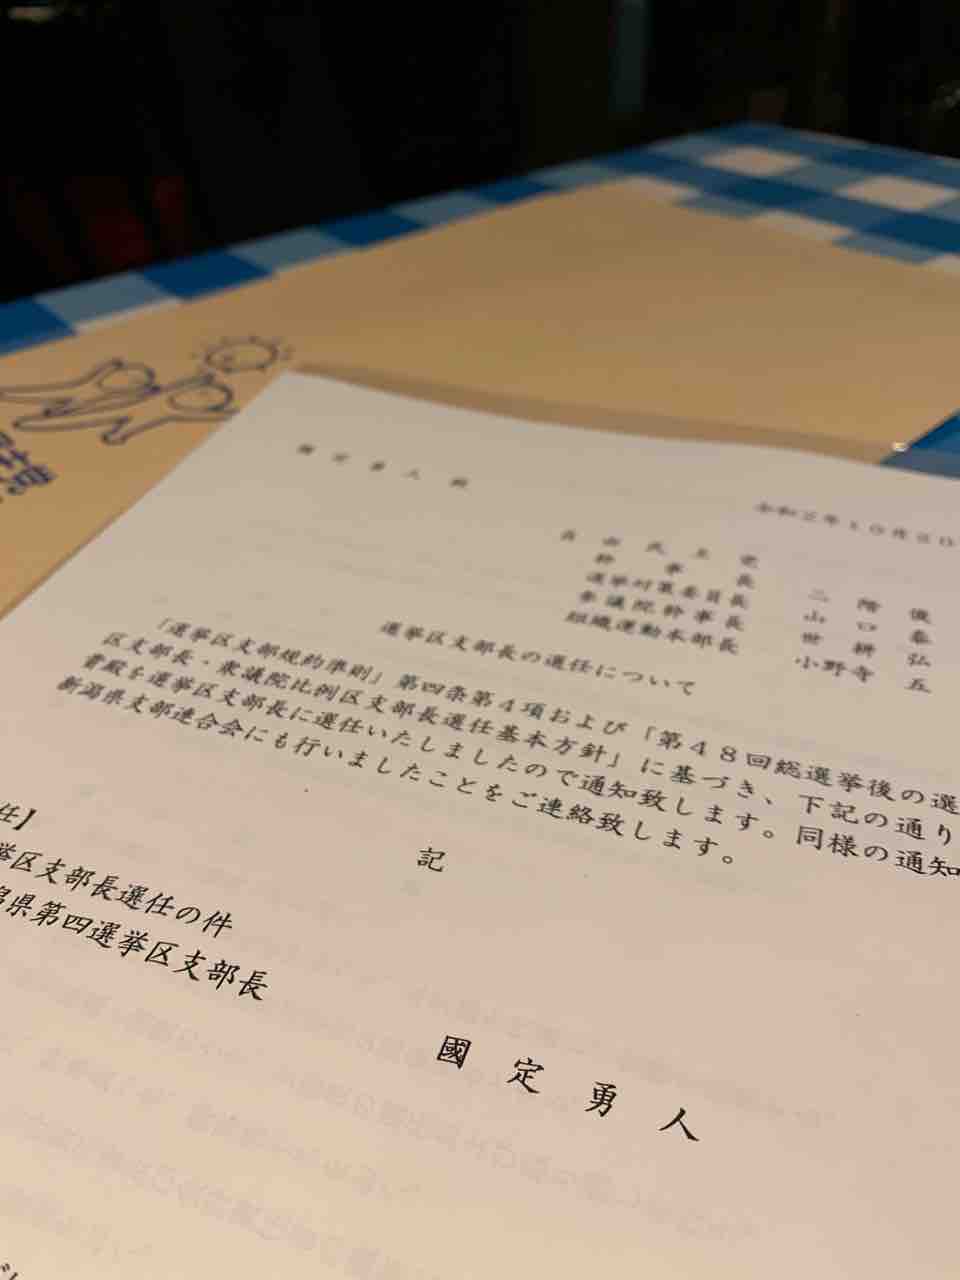 國定勇人殿
自由民主党
幹事長 二階俊
選挙対策委員長 山口泰
参議院幹事長 世耕弘
組織運動本部長 小野寺五
選挙区支部長の選任について
「選挙区支部規約準則」第四条第4項および「第48回総選挙後の選
区支部長・衆議院比例区支部長選任基本方針」に基づき、下記の通り
貴殿を選挙区支部長に選任いたしましたので通知致します。同様の通知
新潟県支部連合会にも行いましたことをご連絡致します。
記
任】
挙区支部長選任の件
潟県第四選挙区支部長
國定勇人